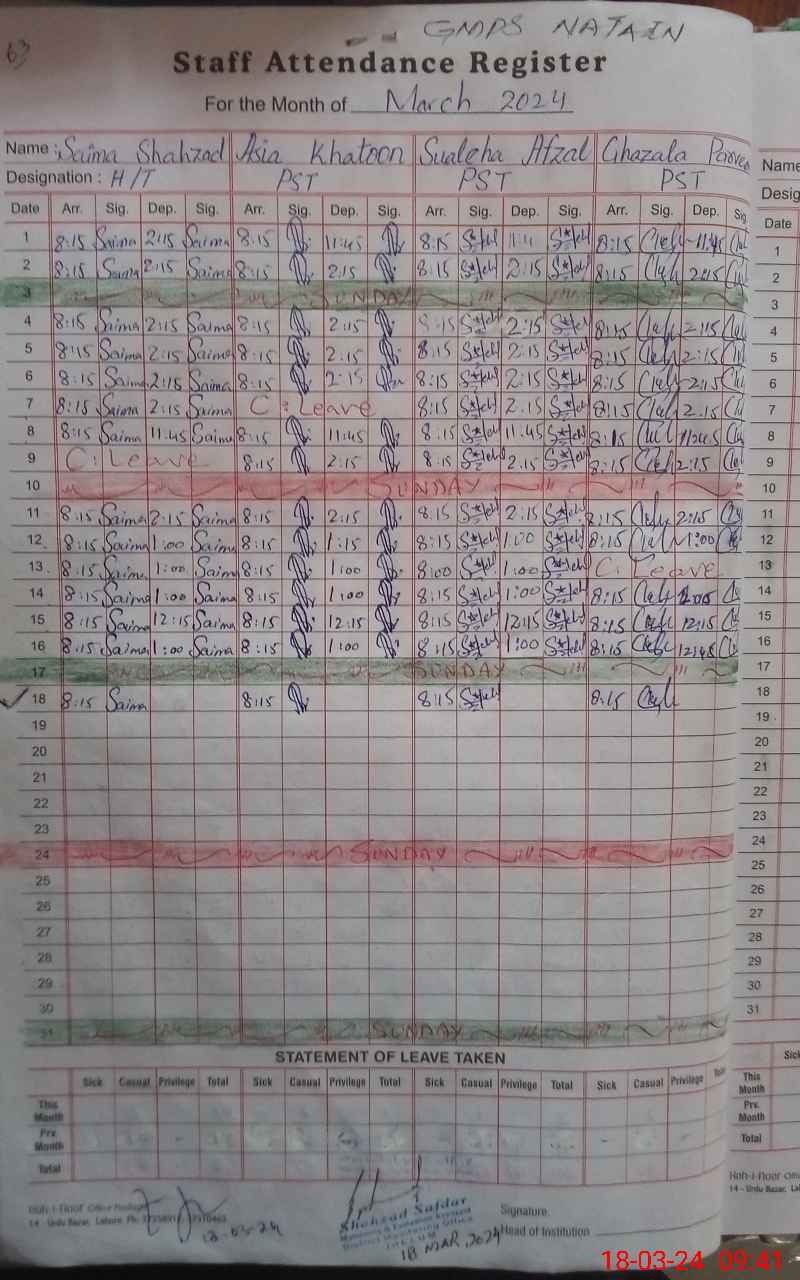 63
GMPS NATAIN
Staff Attendance Register
For the Month of March 2024
Name : Saima Shahzad Asia Khatoon Sualeha Afzal Ghazala Name
Designation : H/T PST PST PST Desig
Date Arr. Sig. Dep. Sig. Arr. Sig. Dep. Sig. Arr. Sig. Dep. Sig. Arr. Sig. Dep. Sig. Date
1 8:15 Saima 2:15 Saima 8:15 11:45 8:15 8:15 11:45 1
2 8:15 Saima 2:15 Saima 8:15 2:15 8:15 2:15 8:15 2:15 2
3 SUNDAY 3
4 8:15 Saima 2:15 Saima 8:15 2:15 8:15 2:15 8:15 2:15 4
5 8:15 Saima 2:15 Saima 8:15 2:15 8:15 2:15 8:15 2:15 5
6 8:15 Saima 2:15 Saima 8:15 2:15 8:15 2:15 8:15 2:15 6
7 8:15 Saima 2:15 Saima C: Leave 8:15 2.15 8:15 2.15 7
8 8:15 Saima 11:45 Saima 8:15 11:45 8.15 11:45 8:15 11:45 8
9 C: Leave 8:15 2:15 8.15 2.15 8:15 2:15 9
10 SUNDAY 10
11 8:15 Saima 2:15 Saima 8:15 2:15 8:15 2:15 8:15 2:15 11
12 8:15 Saima 1:00 Saima 8:15 1:15 8:15 1:00 8:15 1:00 12
13 8:15 Saima 1:00 Saima 8:15 1:00 8:00 1:00 C: Leave 13
14 8:15 Saima 1:00 Saima 8:15 1:00 8:15 1:00 8:15 14
15 8:15 Saima 12:15 Saima 8:15 12:15 8:15 12:15 8:15 12:15 15
16 8:15 Saima 1:00 Saima 8:15 1:00 8:15 1:00 8:15 12:45 16
17 SUNDAY 17
18 8:15 Saima 8:15 8:15 8:15 18
19 19
20 20
21 21
22 22
23 23
24 SUNDAY 24
25 25
26 26
27 27
28 28
29 29
30 30
31 SUNDAY 31
STATEMENT OF LEAVE TAKEN
Sick Casual Privilege Total Sick Casual Privilege Total Sick Casual Privilege Total Sick Casual Privilege Total Sick
This Month This Month
Prv. Month Prv. Month
Total Total
Koh-i-Noor Office Products
14 - Urdu Bazar, Lahore. Ph:
18-03-24
Shahzad Safdar
18 MAR 2024
Signature.
Head of Institution
Koh-i-Noor
14 - Urdu Bazar,
18-03-24 09:41